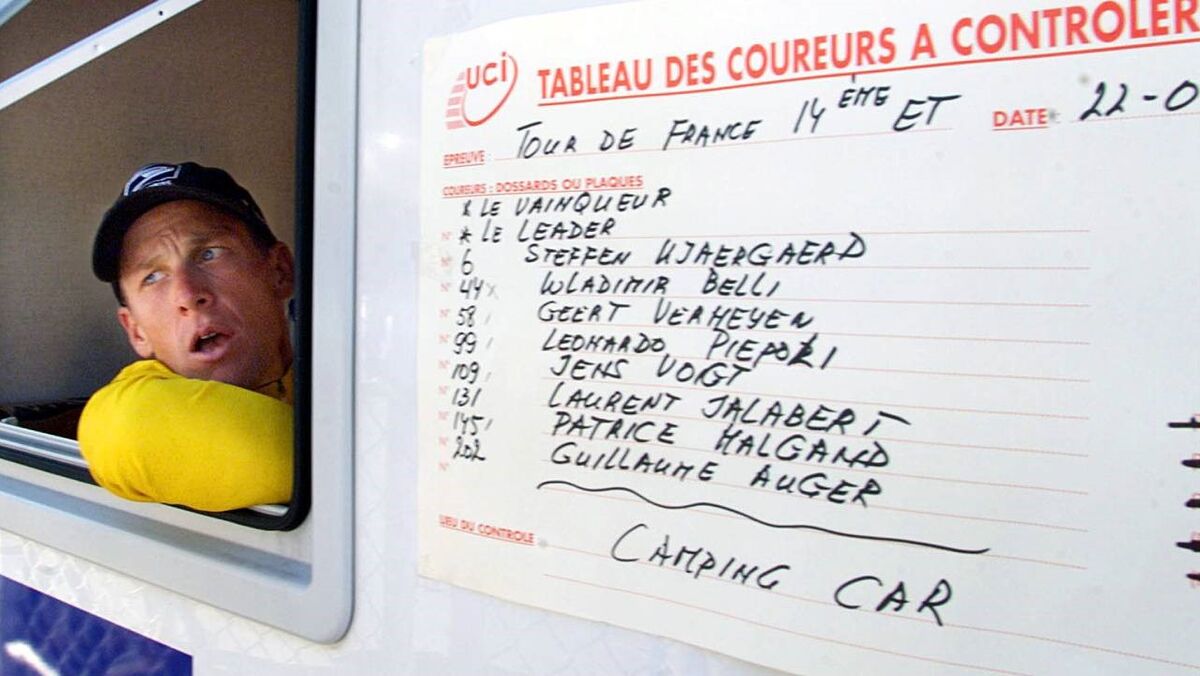 UCI
TABLEAU DES COUREURS A CONTROLER
EPREUVE : TOUR DE FRANCE 14 ÈME ET DATE : 22-0
COUREURS : DOSSARDS OU PLAQUES
* LE VAINQUEUR
N° * LE LEADER
N° 6 STEFFEN KJAERGAERD
N° 44 x WLADIMIR BELLI
N° 58 GEERT VERHEYEN
N° 99 LEONARDO PIEPOLI
N° 109 JENS VOIGT
N° 131 LAURENT JALABERT
N° 145 PATRICE HALGAND
N° 202 GUILLAUME AUGER
N°
LIEU DU CONTROLE : CAMPING CAR